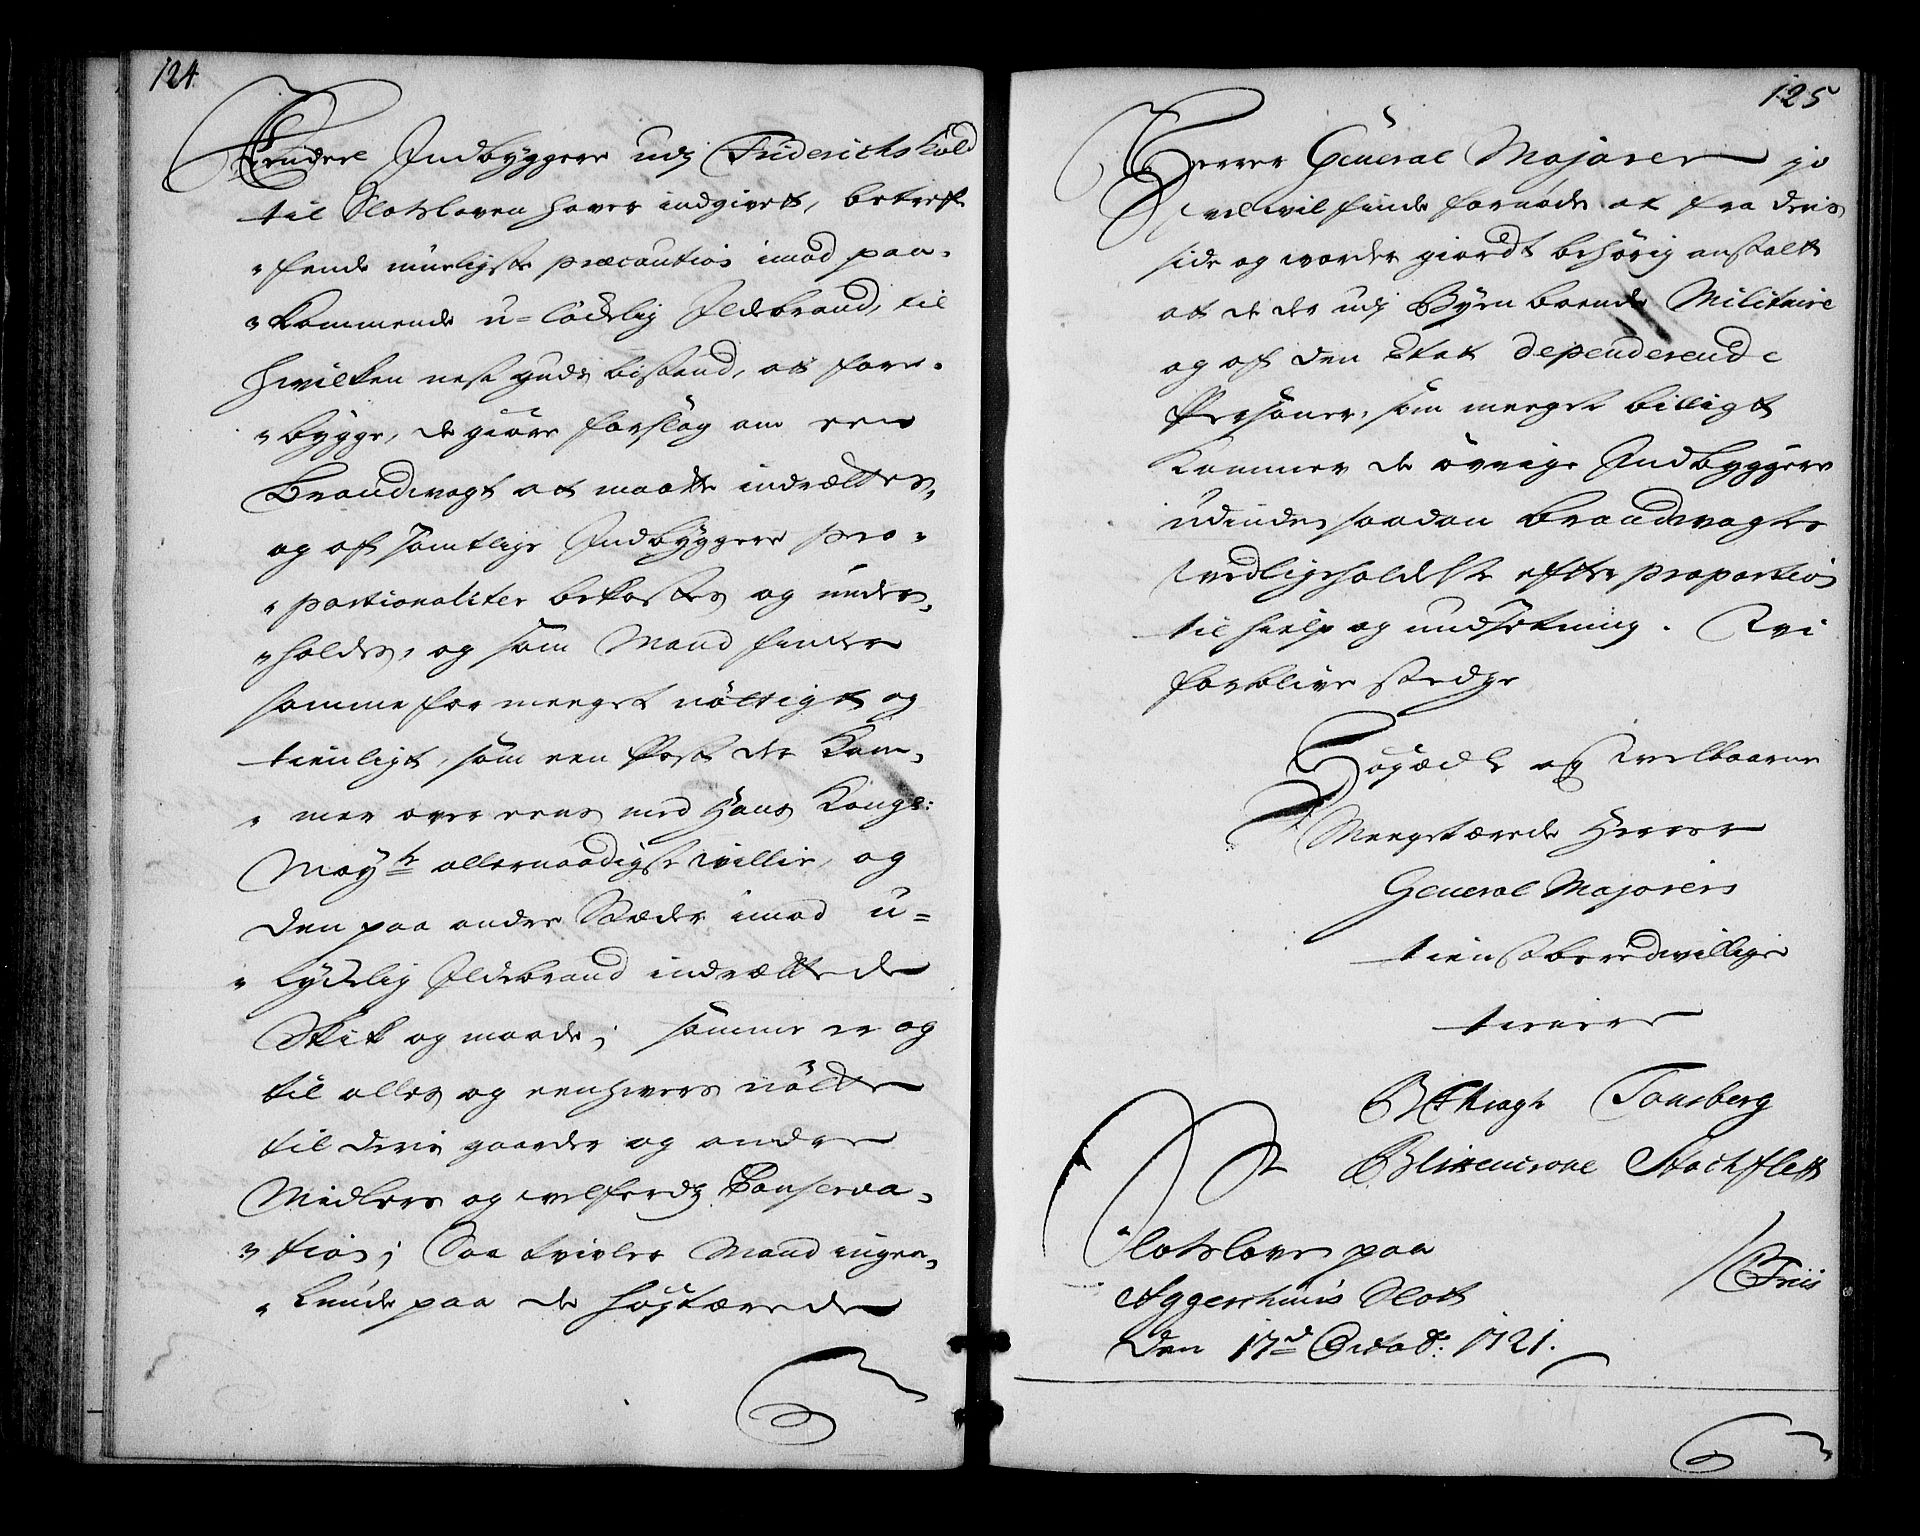 124.
Andere Indbyggere udj Friderichshald
til Slotsloven haver indgivett, betreff-
"fende mueligste præcaution imod paa-
"kommende u-lÿdelig Ildebrand, til
hvilken nest guds bistand, at fore-
"bygge, de giøre forslag om een
Brandvagt at maatte indrættes,
og af samtlige Indbyggere pro-
"portionaliter bekostes og under-
"holdes, og som Mand finder
samme for meeget nøttigt og
tienligt, som een Post der kom-
"mer over eens med Hans Kongl:
Mayts allernaadigste villie, og
den paa andre Stæder imod u-
"lydelig Ildebrand indrættede
Skik og maade; samme er og
til alles og eenhvers nøtte
til deris gaarder og andre
Midlers og velferdz Conserva-
"tion; Saa tvivler Mand ingen-
"lunde paa de høgtærede
125
Herrer General Majorer jo
vel vil finde fornøden at fra deris
side og vorder giordt behørig anstalt
at de der udj Byen boende Militaire
og af den Etat dependerende
Persöner, som meeget billigt
kommer de øvrige Indbyggere
udinden saadan brandvagtes
vedligeholdelse efter proportion
til hielp og undsætning. Vi
forblive stedze
Høgædle og Velbaarne
Meegetærede Herrer
General Majorers
tienstberedvillige
tienere
BKragh Tonsberg
Blixencrone Stockflett
Friis
Slotslove paa
Aggershuus Slott
den 17d Octob: 1721.